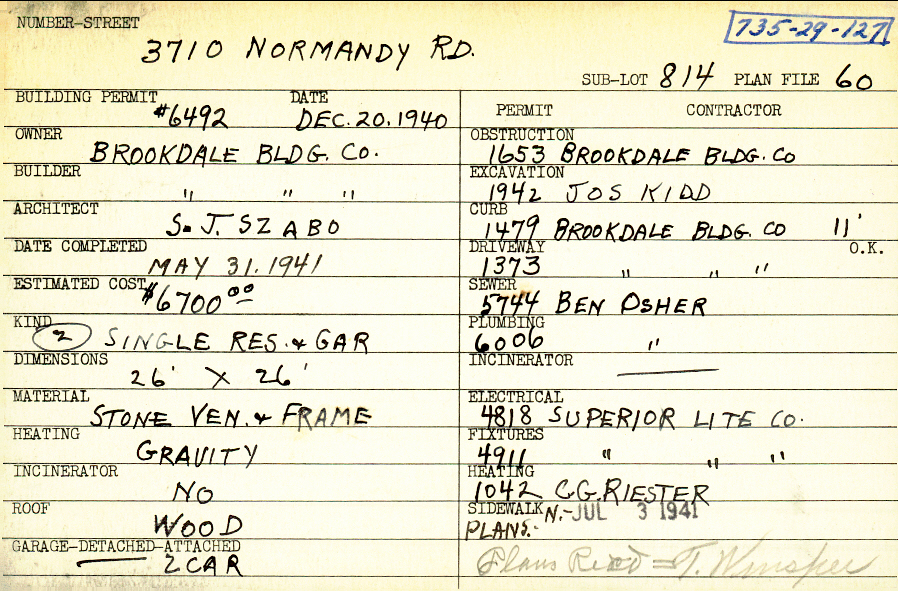 NUMBER-STREET
735-29-127
3710 NORMANDY RD.
SUB-LOT 814 PLAN FILE 60
BUILDING PERMIT DATE
#6492 DEC. 20. 1940
OWNER
BROOKDALE BLDG. CO.
BUILDER
" " "
ARCHITECT
S. J. SZABO
DATE COMPLETED
MAY 31. 1941
ESTIMATED COST
$6700 00
KIND
2 SINGLE RES. & GAR
DIMENSIONS
26' X 26'
MATERIAL
STONE VEN. & FRAME
HEATING
GRAVITY
INCINERATOR
NO
ROOF
WOOD
GARAGE-DETACHED-ATTACHED
2 CAR
PERMIT CONTRACTOR
OBSTRUCTION
1653 BROOKDALE BLDG. CO
EXCAVATION
1942 JOS KIDD
CURB
1479 BROOKDALE BLDG. CO 11'
DRIVEWAY O.K.
1373 " " "
SEWER
5744 BEN OSHER
PLUMBING
6006 "
INCINERATOR
ELECTRICAL
4818 SUPERIOR LITE CO.
FIXTURES
4911 " " "
HEATING
1042 C.G. RIESTER
SIDEWALK N.- JUL 3 1941
PLANS.-
Plans Rec'd = T.